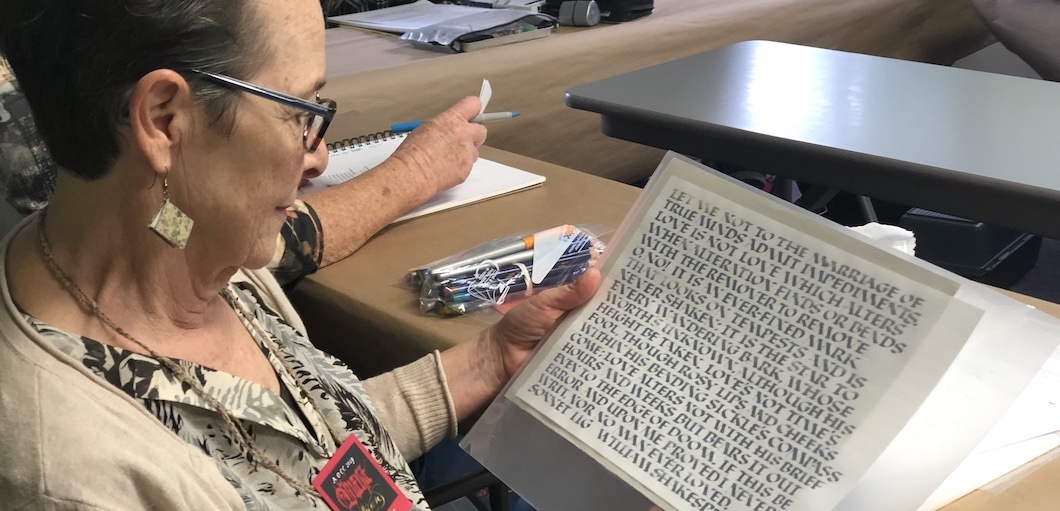 LET ME NOT TO THE MARRIAGE OF
TRUE MINDS ADMIT IMPEDIMENTS,
LOVE IS NOT LOVE WHICH ALTERS
WHEN ALTERATION FINDS OR BENDS
WITH THE REMOVER TO REMOVE
O, NOT IT IS AN EVER-FIXED MARK
THAT LOOKS ON TEMPESTS AND IS
NEVER SHAKEN, IT IS THE STAR TO
EVERY WANDERING BARK, WHOSE
WORTH'S UNKNOWN ALTHOUGH HIS
HEIGHT BE TAKEN. LOVE'S NOT TIME'S
FOOL THOUGH ROSY LIPS AND CHEEKS
WITHIN HIS BENDING SICKLE'S COMPASS
COME. LOVE ALTERS NOT WITH HIS BRIEF
HOURS AND WEEKS BUT BEARS IT OUT
EVEN TO THE EDGE OF DOOM IF THIS BE
ERROR AND UPON ME PROVED I NEVER
WRIT, NOR NO MAN EVER LOVED.
SONNET 116 WILLIAM SHAKESP